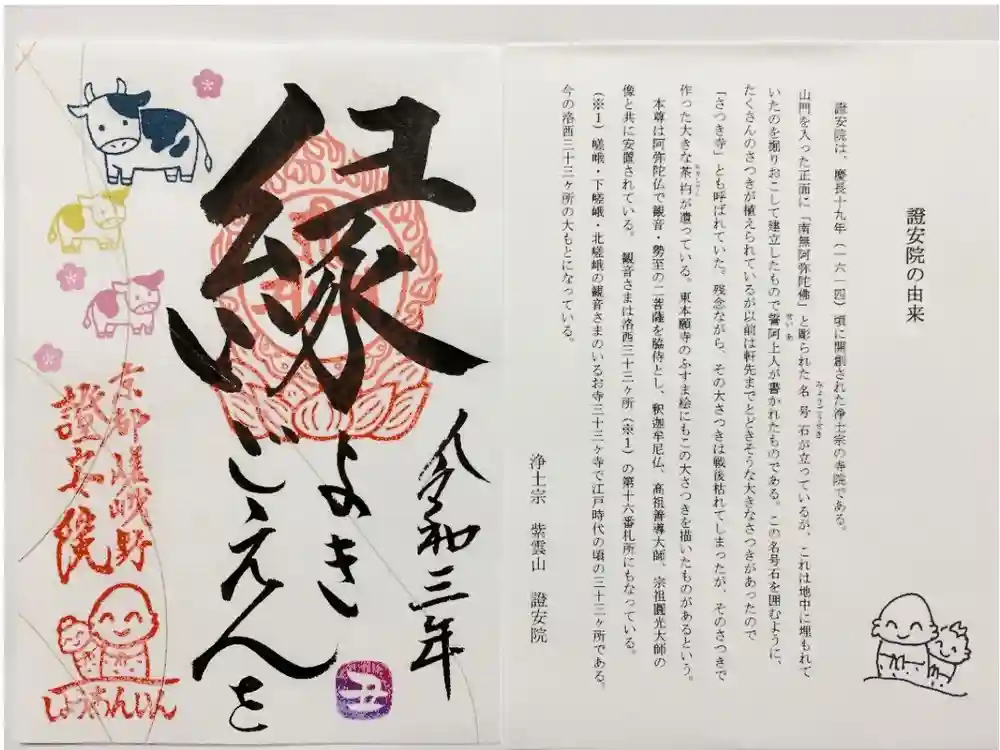 縁
よき
ごえんを
令和三年
丑
京都嵯峨野
證安院
しょうあんいん
證安院の由来
證安院は、慶長十九年（一六一四）頃に開創された浄土宗の寺院である。
山門を入った正面に「南無阿弥陀佛」と彫られた名号石が立っているが、これは地中に埋もれて
みょうごうせき
いたのを掘りおこして建立したもので誓阿上人が書かれたものである。この名号石を囲むように、
せいあ
たくさんのさつきが植えられているが以前は軒先までとどきそうな大きなさつきがあったので
「さつき寺」とも呼ばれていた。残念ながら、その大さつきは戦後枯れてしまったが、そのさつきで
作った大きな茶杓が遺っている。東本願寺のふすま絵にもこの大さつきを描いたものがあるという。
本尊は阿弥陀仏で観音・勢至の二菩薩を脇侍とし、釈迦牟尼仏、高祖善導大師、宗祖圓光大師の
像と共に安置されている。観音さまは洛西三十三ヶ所（※１）の第十六番札所にもなっている。
（※１）嵯峨・下嵯峨・北嵯峨の観音さまのいるお寺三十三ヶ寺で江戸時代の頃の三十三ヶ所である。
今の洛西三十三ヶ所の大もとになっている。
浄土宗　紫雲山　證安院